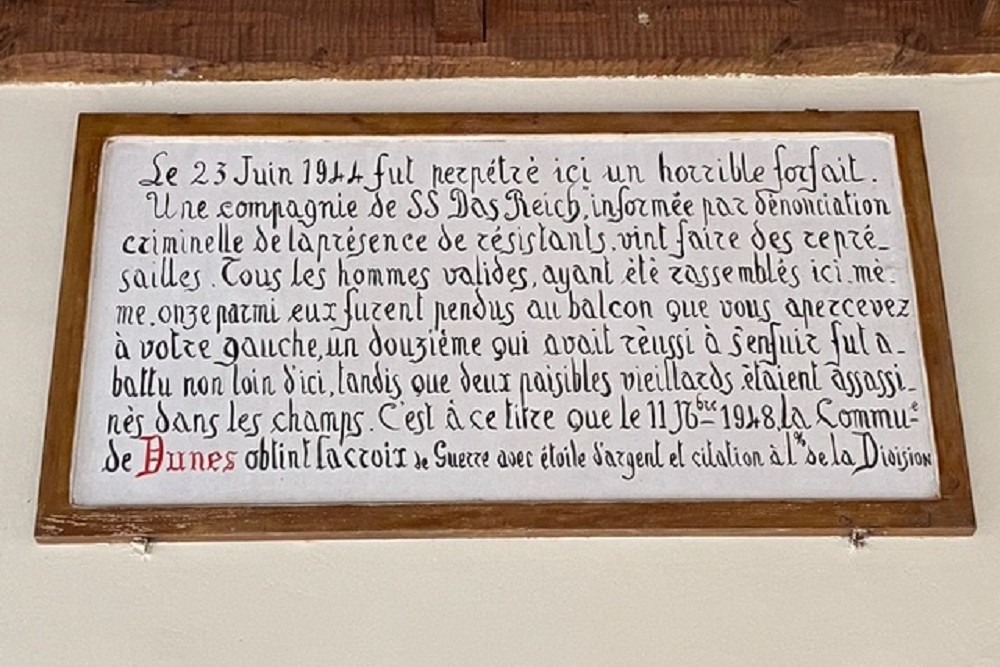 Le 23 Juin 1944 fut perpétré ici un horrible forfait.
Une compagnie de SS Das Reich, informée par dénonciation
criminelle de la présence de résistants, vint faire des repré-
sailles. Tous les hommes valides, ayant été rassemblés ici mê-
me, onze parmi eux furent pendus au balcon que vous apercevez
à votre gauche, un douzième qui avait réussi à s'enfuir fut a-
battu non loin d'ici, tandis que deux paisibles vieillards étaient assassi-
nés dans les champs. C'est à ce titre que le 11 9bre 1948, la Commue
de Dunes obtint la croix de Guerre avec étoile d'argent et citation à l'% de la Division